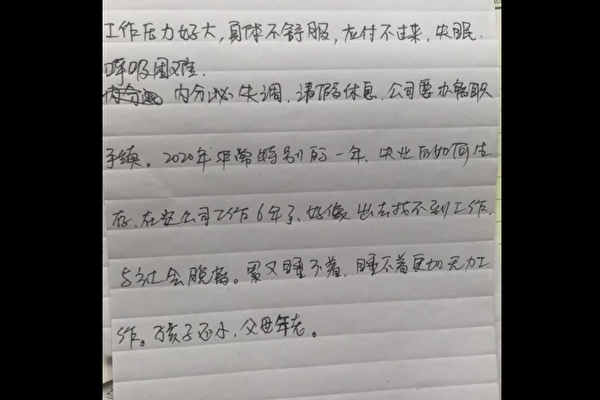 工作压力好大,身体不舒服,应付不过来,失眠.
呼吸困难.
内分泌 内分泌失调,请假休息,公司要办离职
手续。2020年非常特别的一年,失业后如何生
存,在空公司工作6年了,好像出去找不到工作,
与社会脱离。累又睡不着,睡不着更加无力工
作。孩子还小,父母年老。